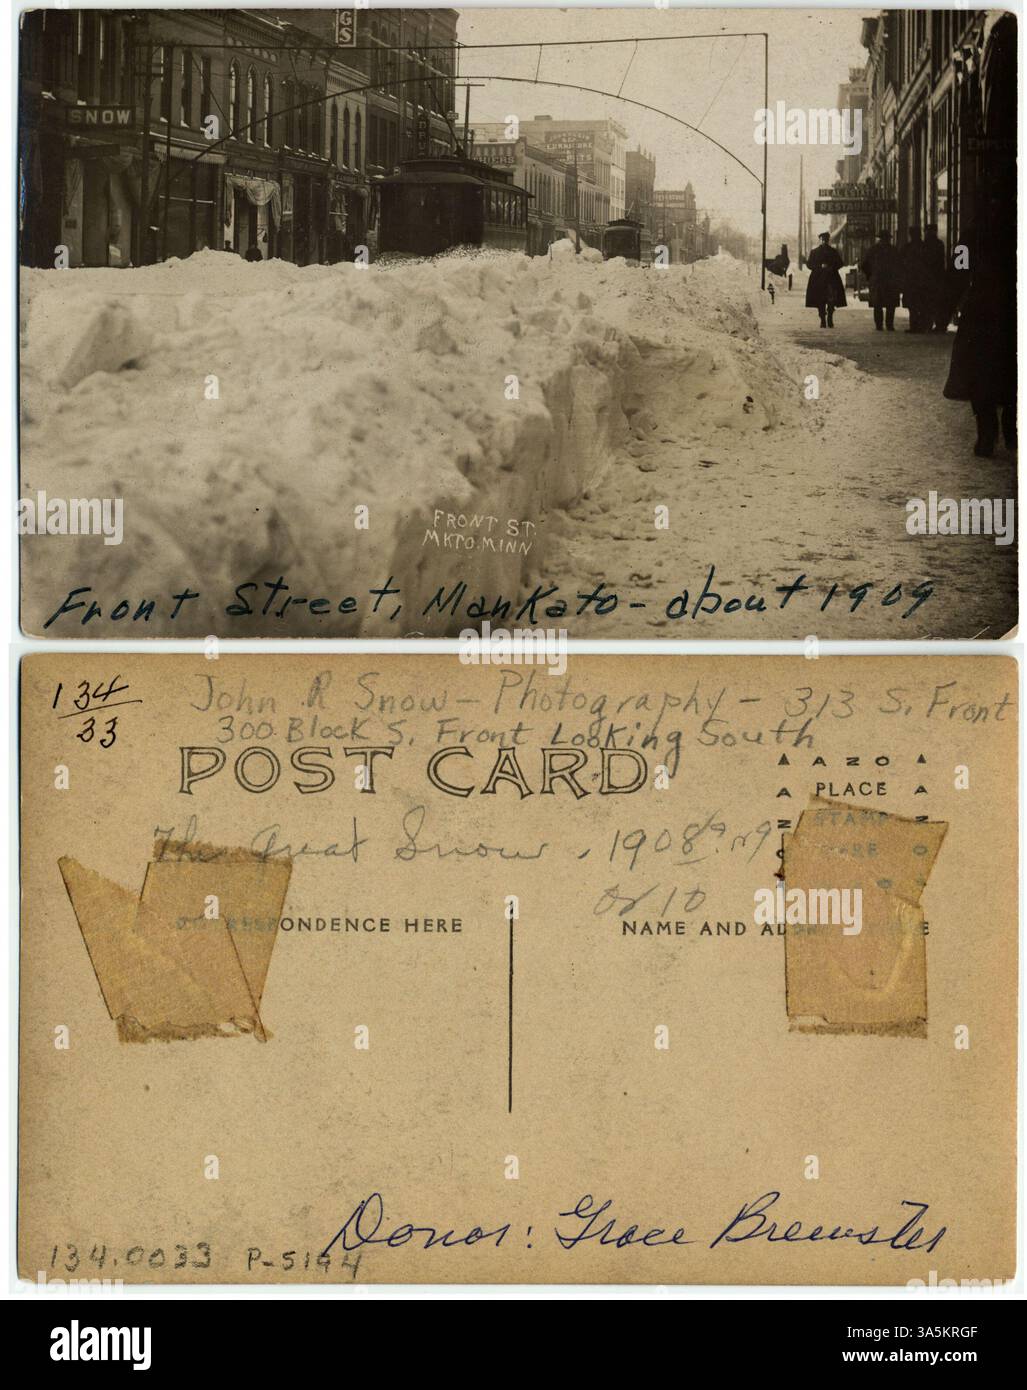 GS
SNOW
DRU
FURNITURE
REAL ESTATE
RESTAURANT
EMPLO
FRONT ST.
MKTO. MINN
Front Street, Mankato - about 1909
134/33
John R Snow - Photography - 313 S. Front
300 Block S. Front Looking South
POST CARD
AZO
PLACE
STAMP
HERE
The Great Snow, 1908, 9 or 9
or 10
CORRESPONDENCE HERE
NAME AND ADDRESS HERE
Donor: Grace Brewster
134.0033 P-5194
alamy
Image ID: 3A5KRGF
www.alamy.com